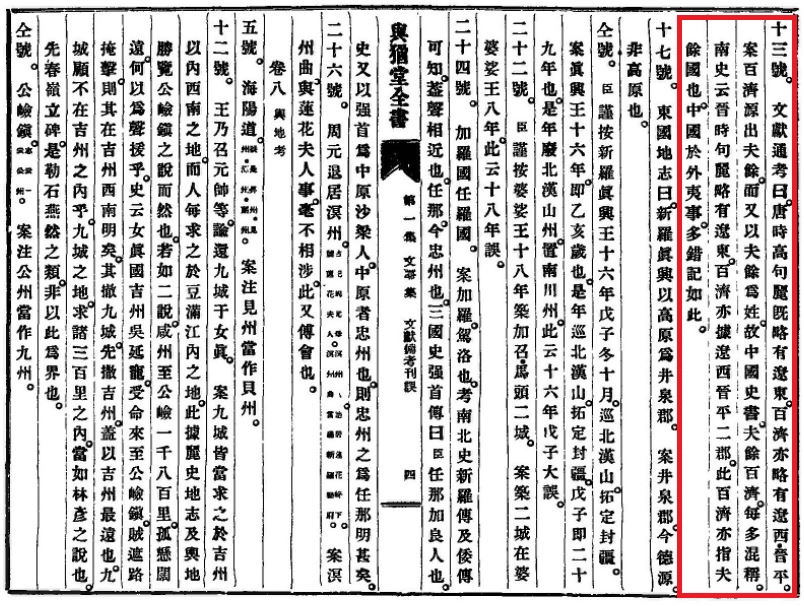 十三號。　文獻通考曰。唐時高句麗旣略有遼東。百濟亦略有遼西·晉平。
案百濟源出夫餘。而又以夫餘爲姓。故中國史書。夫餘百濟。每多混稱。
南史云晉時句麗略有遼東。百濟亦據遼西晉平二郡。此百濟亦指夫
餘國也。中國於外夷事。多錯記如此。
十七號。　東國地志曰。新羅眞興以高原爲井泉郡。　案井泉郡。今德源。
非高原也。
仝號。　臣謹按新羅眞興王十六年戊子冬十月。巡北漢山。拓定封疆。
案眞興王十六年。卽乙亥歲也。是年巡北漢山。拓定封疆。戊子卽二十
九年也。是年廢北漢山州。置南川州。此云十六年戊子大誤。
二十二號。　臣謹按婆娑王十八年築加召·馬頭二城。　案築二城在婆
婆娑王八年。此云十八年誤。
二十四號。　加羅國任羅國。　案加羅駕洛也。考南北史新羅傳及倭傳
可知。蓋聲相近也。任那。今忠州也。三國史强首傳曰臣任那加良人也。
與猶堂全書　第一集　文學集　文獻備考刊誤　四
史又以强首爲中原沙梁人。中原者忠州也。則忠州之爲任那明甚矣。
二十六號。　周元退居溟州。　案溟
州曲與蓮花夫人事。毫不相涉。此又傅會也。
卷八　輿地考
五號。　海陽道。　案注見州當作貝州。
十二號。　王乃召元帥等。論還九城于女眞。　案九城皆當求之於吉州
以內西南之地。而人每求之於豆滿江內之地。此據麗史地志及輿地
勝覽公嶮鎭之說而然也。若如二說。咸州至公嶮一千八百里。孤懸闊
遠。何以爲聲援乎。史云女眞國吉州吳延寵。受命來至公嶮鎭。賊遮路
掩擊。則其在吉州西南明矣。其撤九城。先撤吉州。蓋以吉州最遠也。九
城顧不在吉州之內乎。九城之地。求諸三百里之內。當如林彦之說也。
先春嶺立碑。是勒石燕然之類。非以此爲界也。
仝號。　公嶮鎭。　案注公州當作九州。